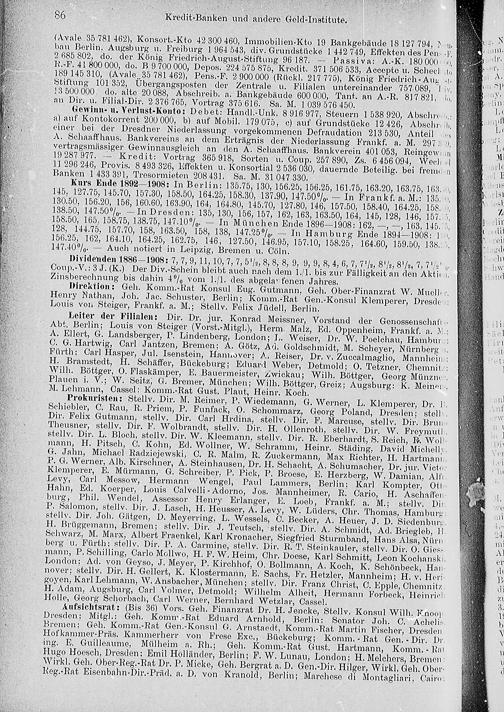 86 Kredit-Banken und andere Geld-Institute.
(Avale 35 781 462), Konsort.-Kto 42 300 460, Immobilien-Kto 19 Bankgebäude 18 127 794,
bau Berlin, Augsburg u. Freiburg 1 964 543, div. Grundstücke 1 442 749, Effekten des Pen.-F.
2 685 802, do. der König Friedrich-August-Stiftung 96 187. — Passiva: A.-K. 180 000
R.-F. 41 800 000, do. B 9 700 000, Depos. 224 575 875, Kredit. 371 506 533, Accepte u. Scheck
189 145 310, (Avale 35 781 462), Pens.-F. 2 900 000 (Rückl. 217 775), König Friedrich-Aug
Stiftung 101 352, Übergangsposten der Zentrale u. Filialen untereinander 757 089,
13 500 000 do. alte 20 088, Abschreib. a. Bankgebäude 600 000, Tant. an A.-R. 817 821,
an Dir. u. Filial-Dir. 2 376 765, Vortrag 375 616. Sa. M. 1 039 576 450.
Gewinn- u. Verlust-Konto: Debet: Handl.-Unk. 8 916 977, Steuern 1 538 920, Abschre
a) auf Kontokorrent 200 000, b) auf Mobil. 179 075, c) auf Grundstücke 12 426, Abschr
einer bei der Dresdner Niederlassung vorgekommenen Defraudation 213 530, Anteil
A. Schaaffhaus. Bankvereins an dem Erträgnis der Niederlassung Frankf. a. M. 297
vertragsmässiger Gewinnausgleich an den A. Schaaffhaus. Bankverein 401 053, Reingew
19 287 977. — Kredit: Vortrag 365 918, Sorten u. Coup. 257 890, Zs. 6 456 094, Wech
11 296 246, Provis. 8 493 326, Effekten u. Konsortial 2 536 030, dauernde Beteilig. bei frem
Banken 1 433 391, Tresormieten 208 431. Sa. M. 31 047 330.
Kurs Ende 1892—1908: In Berlin: 135.75, 130, 156.25, 156.25, 161.75, 163.20, 163.75, 163
145, 127.75, 145.70, 157.30, 158.50, 164.25, 158.30, 137.90, 147.50%. — In Frankf. a. M.: 135
130.50, 156.20, 156, 160.60, 163.90, 164, 164.80, 145.70, 127.80, 146, 157.50, 158.40, 164.25, 158
138.50, 147.50%. — In Dresden: 135, 130, 156, 157, 162, 163, 163.50, 164, 145, 128, 146, 157.
158.50, 165, 158.75, 138.75, 147.10%. — In München Ende 1896—1908: 162, —, —, 163, 145.
128, 144.75, 157.70, 158, 163.50, 158, 138, 147.25%. — In Hamburg Ende 1894—1908:
156.25, 162, 164.10, 164.25, 162.75, 146, 127.50, 146.95, 157.10, 158.25, 164.60, 159.50, 138.
147.40%. — Auch notiert in Leipzig, Bremen u. Cöln.
Dividenden 1886—1908: 7, 7, 9, 11, 10, 7, 7, 5½, 8, 8, 8, 9, 9, 9, 8, 4, 6, 7, 7½, 8½, 8½, 7½
Coup.-V.: 3 J. (K.) Der Div.-Schein bleibt auch nach dem 1./1. bis zur Fälligkeit an den Aktie
Zinsberechnung bis dahin 4% vom 1./1. des abgelaufenen Jahres.
Direktion: Geh. Komm.-Rat Konsul Eug. Gutmann, Geh. Ober-Finanzrat W. Mueller
Henry Nathan, Joh. Jac. Schuster, Berlin; Komm.-Rat Gen.-Konsul Klemperer, Dresden
Louis von Steiger, Frankf. a. M.; Stellv. Felix Jüdell, Berlin.
Leiter der Filialen: Dir. Dr. jur. Konrad Meissner, Vorstand der Genossenschaft
Abt. Berlin; Louis von Steiger (Vorst.-Mitgl.), Herm. Malz, Ed. Oppenheim, Frankf. a. M.
A. Ellert, G. Landsberger, P. Lindenberg, London; L. Weiser, Dr. W. Poelchau, Hamburg
C. G. Hartwig, Carl Jantzen, Bremen; A. Götz, Ad. Goldschmidt, M. Scheyer, Nürnberg
Fürth: Carl Hasper, Jul. Isenstein, Hannover; A. Reiser, Dr. v. Zuccalmaglio, Mannheim
H. Bramstedt, H. Schäffer, Bückeburg; Eduard Weber, Detmold; O. Tetzner, Chemnitz
Wilh. Böttger, O. Flaskämper, E. Bauermeister, Zwickau; Wilh. Böttger, Georg Münzner
Plauen i. V.; W. Seitz, G. Bremer, München; Wilh. Böttger, Greiz; Augsburg: K. Meier
M. Lehmann, Cassel: Komm.-Rat Gust. Plaut, Heinr. Koch.
Prokuristen: Stellv. Dir. M. Reimer, P. Wiedemann, G. Werner, L. Klemperer, Dr.
Schiebler, C. Rau, R. Priem, P. Funfack, O. Schommarz, Georg Poland, Dresden; stellv
Dir. Felix Gutmann, stellv. Dir. Carl Hrdina, stellv. Dir. F. Marcuse, stellv. Dir. Brun
Theusner, stellv. Dir. F. Wolbrandt, stellv. Dir. H. Olenroth, stellv. Dir. W. Freymuth
stellv. Dir. L. Bloch, stellv. Dir. W. Kleemann, stellv. Dir. R. Eberhardt, S. Reich, D. Woll
mann, H. Pitsch, C. Kohn, Ed. Wollner, W. Schramm, Heinr. Städing, David Michell
G. Jahn, Michael Radziejewski, C. R. Malm, R. Zuckermann, Max Richter, H. Hartman
P. G. Werner, Alb. Kirschner, A. Steinhausen, Dr. H. Schacht, A. Schumacher, Dr. jur. Victor
Klemperer, E. Mürmann, G. Schreiber, P. Pick, P. Broese, E. Herzberg, W. Damian, Alf
Levy, Carl Messow, Hermann Wengel, Paul Lammers, Berlin; Karl Kompter, Ott
Hahn, Ed. Koerper, Louis Calvelli-Adorno, Jos. Mannheimer, R. Cario, H. Aschaffen
burg, Phil. Wendel, Assessor Henry Erlanger, E. Loeb, Frankf. a. M.; stellv. Dir
P. Salomon, stellv. Dir. J. Lasch, H. Heusser, A. Levy, W. Lüders, Chr. Thomas, Hamburg
stellv. Dir. Joh. Gätgen, D. Meyering, L. Wessels, C. Becker, A. Heuer, J. D. Siedenburg
H. Brüggemann, Bremen; stellv. Dir. J. Teutsch, stellv. Dir. A. Schmidt, Ad. Briegleb, H
Schwarz, M. Marx, Albert Fraenkel, Karl Kronacher, Siegfried Sturmband, Hans Alas, Nürn
berg u. Fürth; stellv. Dir. P. A. Carmine, stellv. Dir. R. T. Steinkauler, stellv. Dir. O. Gies-
mann, P. Schilling, Carlo Mollwo, H. F. W. Heim, Chr. Doese, Karl Schmitt, Leon Kochanski
London: Ad. von Geyso, J. Meyer, P. Kirchhoff, O. Bollmann, A. Koch, K. Schönbeck, Han-
nover; stellv. Dir. H. Gellert, K. Klostermann, E. Sachs, Fr. Hetzler, Mannheim; H. v. Heri
goyen, Karl Lehmann, W. Ansbacher, München; stellv. Dir. Franz Christ, C. Epple, Chemnitz
H. Adam, Augsburg, Carl Volmer, Detmold; Wilhelm Alheit, Hermann Forbeck, Heinrich
Holle, Georg Schorbach, Carl Werner, Bernhard Wetzlar, Cassel.
Aufsichtsrat: (Bis 36) Vors. Geh. Finanzrat Dr. H. Jencke, Stellv. Konsul Wilh. Knoop
Dresden; Mitgl.: Geh. Komm.-Rat Eduard Arnhold, Berlin; Senator Joh. C. Achelis
Bremen; Geh. Komm.-Rat Gen.-Konsul G. Arnstaedt, Komm.-Rat Martin Fischer, Dresden
Hofkammer-Präs. Kammerherr von Frese Exc., Bückeburg; Komm.-Rat Gen.-Dir. Dr
ing. E. Guilleaume, Mülheim a. Rh.; Geh. Komm.-Rat Gust. Hartmann, Komm.-Rat
Hugo Hoesch, Dresden; Emil Holländer, Berlin; F. W. Lunau, London; H. Melchers, Bremen
Wirkl. Geh. Ober-Reg.-Rat Dr. P. Micke, Geh. Bergrat a. D. Gen.-Dir. Hilger, Wirkl. Geh. Ober-
Reg.-Rat Eisenbahn-Dir.-Präd. a. D. von Kranold, Berlin; Marchese di Montagliari, Cairo